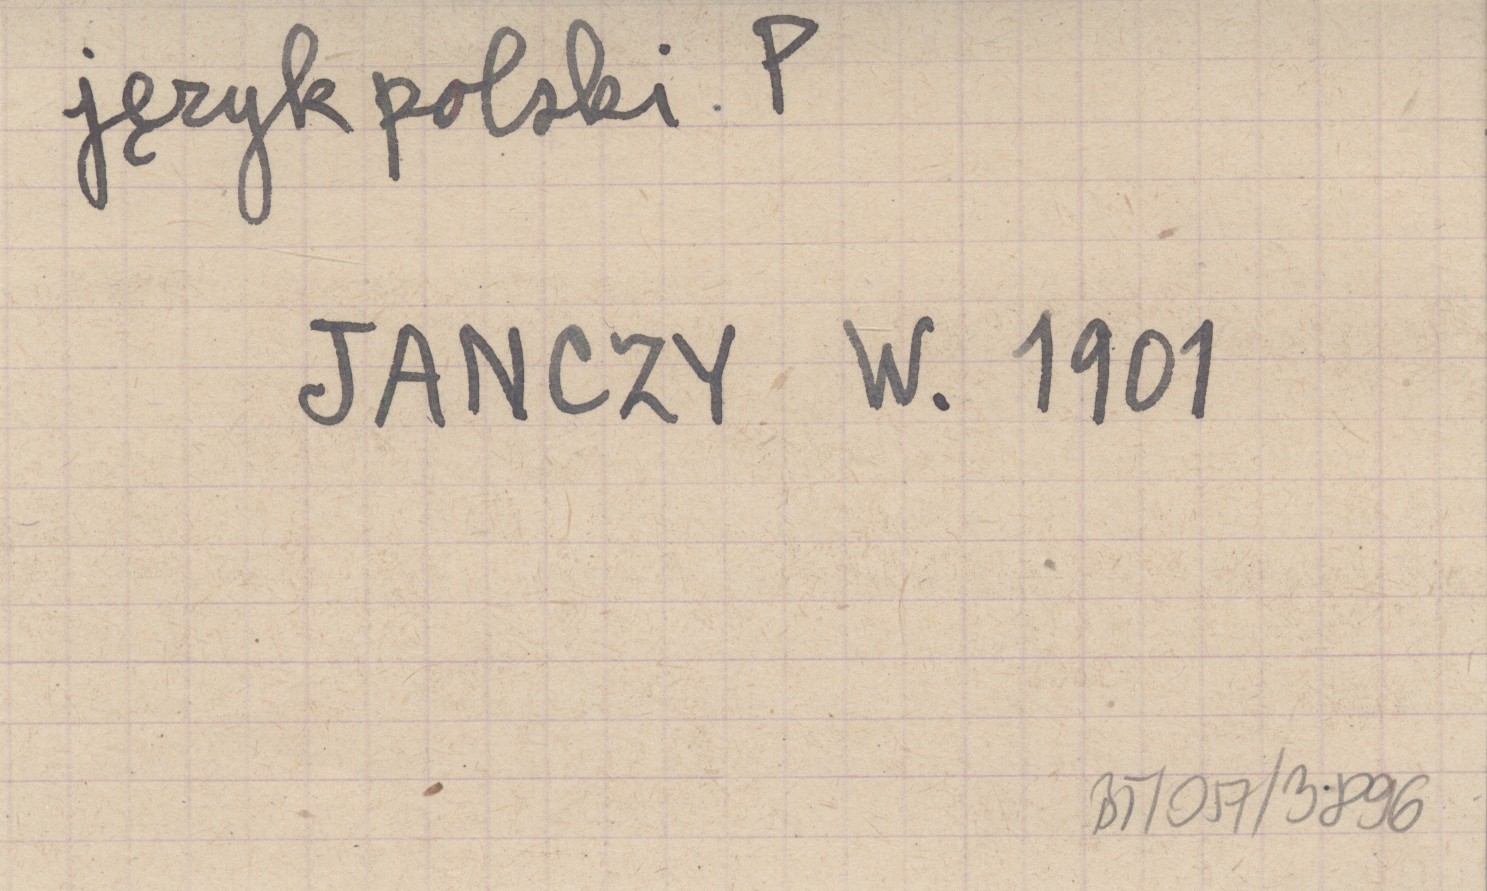 język polski. P
JANCZY W. 1901
BT/057/3.896